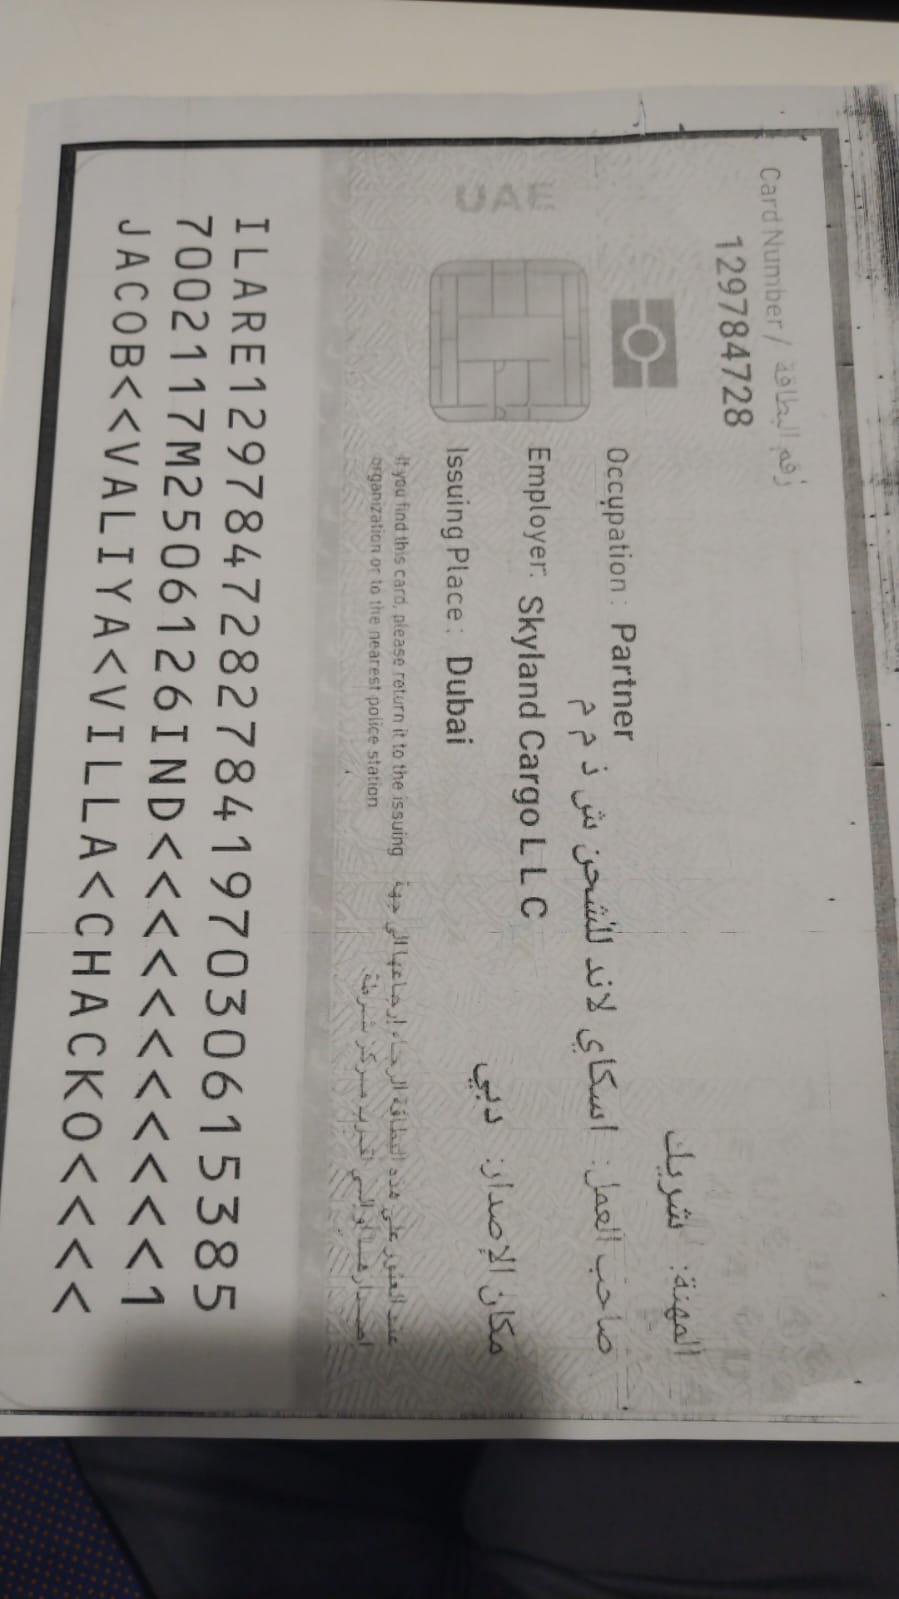 Card Number / رقم البطاقة
129784728
المهنة: شريك
Occupation : Partner
صاحب العمل: اسكاي لاند للشحن ش ذ م م
Employer: Skyland Cargo L L C
مكان الإصدار: دبي
Issuing Place : Dubai
UAE
If you find this card, please return it to the issuing
organization or to the nearest police station
عند العثور على هذه البطاقة الرجاء إرجاعها الى جهة
إصدارها أو إلى أقرب مركز شرطة
ILARE1297847282784197030615385
7002117M2506126IND<<<<<<<<<<<1
JACOB<<VALIYA<VILLA<CHACKO<<<<